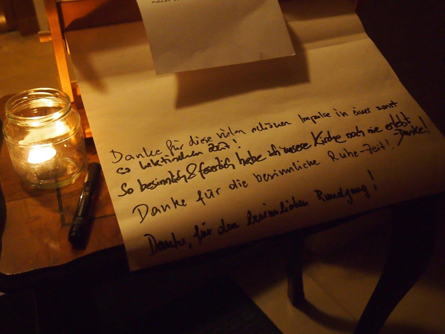 Danke für diese vielen schönen Impulse in einer sonst
so hektischen Zeit!
So besinnlich & feierlich habe ich unsere Kirche noch nie erlebt
Danke!
Danke für die besinnliche Ruhe-Zeit!
Danke, für den besinnlichen Rundgang!